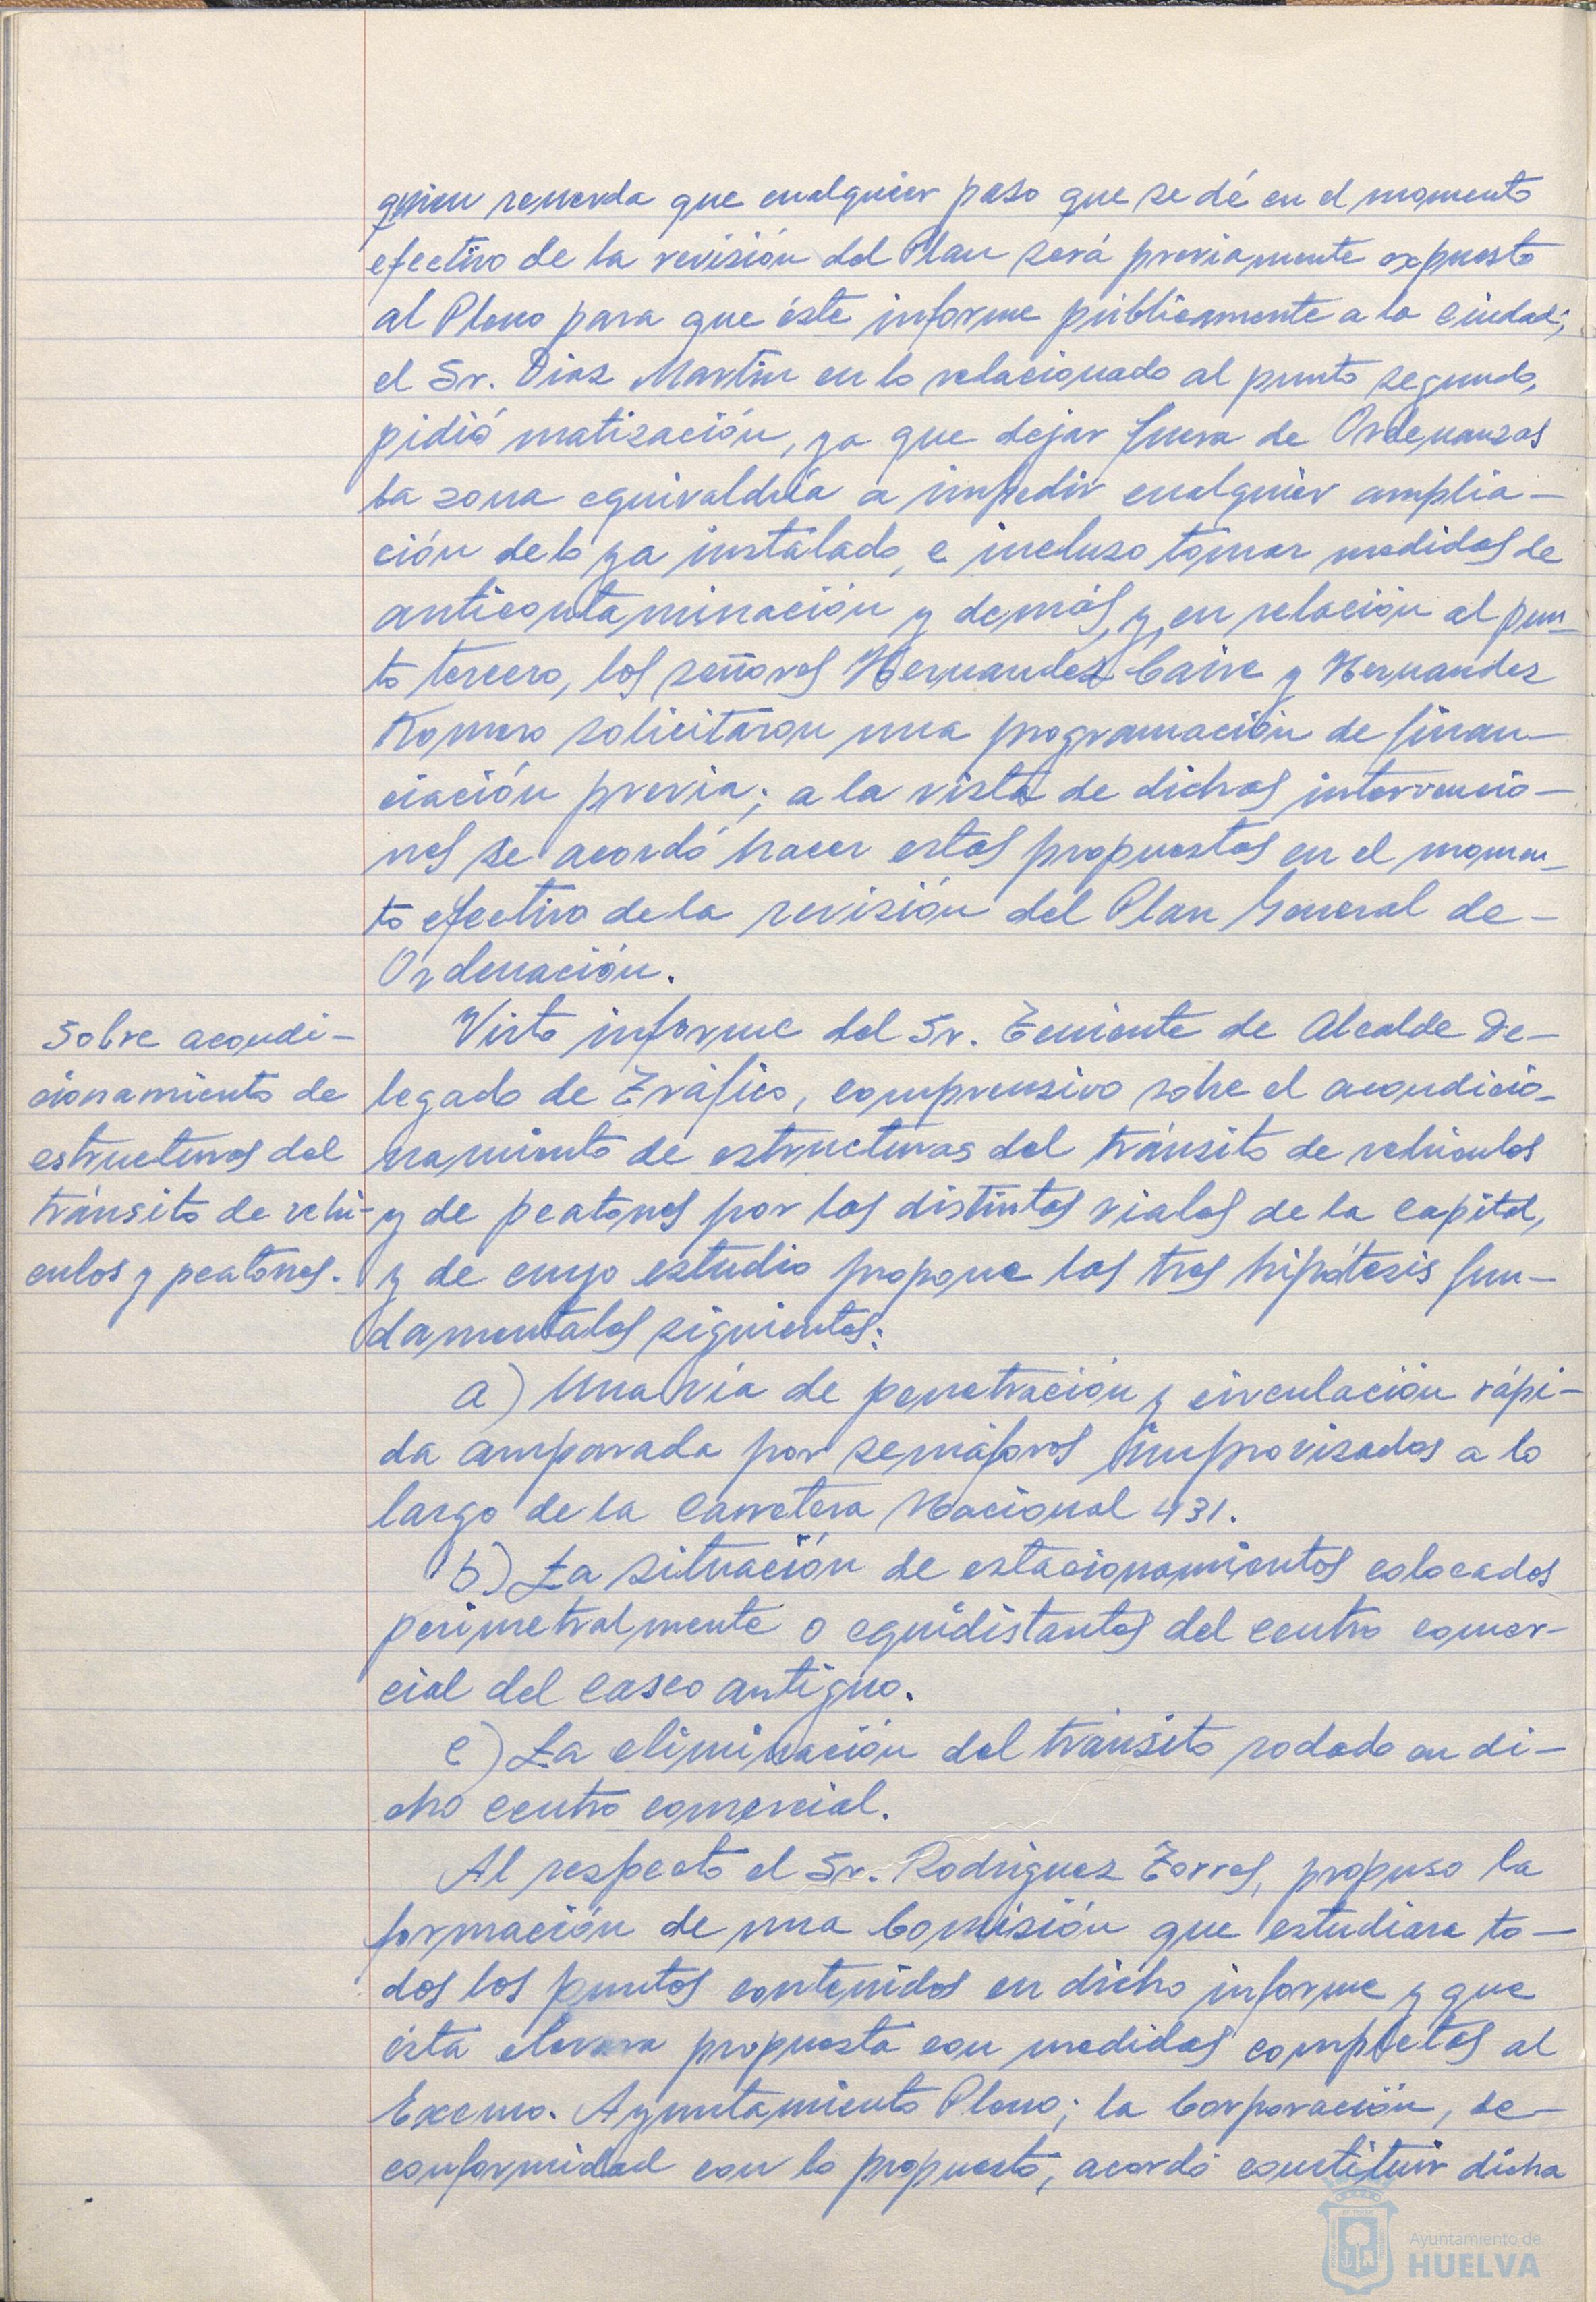 quien recuerda que cualquier paso que se dé en el momento
efectivo de la revisión del Plan será previamente expuesto
al Pleno para que éste informe públicamente a la Ciudad;
el Sr. Diaz Martín en lo relacionado al punto segundo,
pidió matización, ya que dejar fuera de Ordenanzas
la zona equivaldría a impedir cualquier amplia-
ción de lo ya instalado, e incluso tomar medidas de
anticontaminación y demás, y, en relación al pun-
to tercero, los señores Hernandez Caire y Hernandez
Romero solicitaron una programación de finan-
ciación previa; a la vista de dichas intervencio-
nes se acordó hacer estas propuestas en el momen-
to efectivo de la revisión del Plan General de-
Ordenación.
Sobre acondi-
cionamiento de
estructuras del
tránsito de vehí-
culos y peatones.
Visto informe del Sr. Teniente de Alcalde De-
legado de Tráfico, comprensivo sobre el acondicio-
namiento de estructuras del tránsito de vehículos
y de peatones por las distintas viales de la capital,
y de cuyo estudio propone las tres hipótesis fun-
damentales siguientes:
a) Una vía de penetración y circulación rápi-
da amparada por semáforos improvisados a lo
largo de la Carretera Nacional 431.
b) La situación de estacionamientos colocados
perimetralmente o equidistantes del centro comer-
cial del casco antiguo.
c) La eliminación del tránsito rodado en di-
cho centro comercial.
Al respecto el Sr. Rodríguez Torres, propuso la
formación de una Comisión que estudiara to-
dos los puntos contenidos en dicho informe y que
ésta elevara propuesta con medidas completas al
Excmo. Ayuntamiento Pleno; la Corporación, de-
conformidad con lo propuesto, acordó constituir dicha
Ayuntamiento de
HUELVA